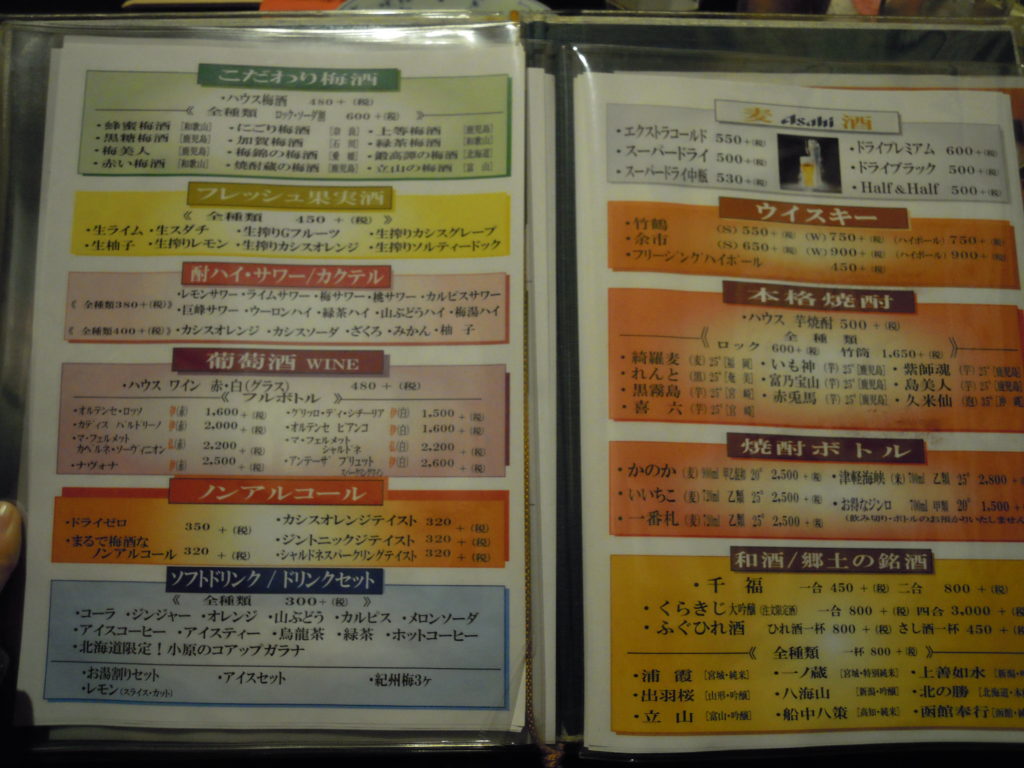 こだわり梅酒
・ハウス梅酒 480+(税)
《 全種類 ロック・ソーダ割 600+(税) 》
・蜂蜜梅酒 [和歌山] ・にごり梅酒 [奈良] ・上等梅酒 [鹿児島]
・黒糖梅酒 [鹿児島] ・加賀梅酒 [石川] ・緑茶梅酒 [和歌山]
・梅美人 [鹿児島] ・梅錦の梅酒 [愛媛] ・鍛高譚の梅酒 [北海道]
・赤い梅酒 [和歌山] ・焼酎蔵の梅酒 [鹿児島] ・立山の梅酒 [富山]
フレッシュ果実酒
《 全種類 450+(税) 》
・生ライム ・生スダチ ・生搾りGフルーツ ・生搾りカシスグレープ
・生柚子 ・生搾りレモン ・生搾りカシスオレンジ ・生搾りソルティードック
酎ハイ・サワー/カクテル
《 全種類380+(税) 》 ・レモンサワー ・ライムサワー ・梅サワー ・桃サワー ・カルピスサワー
・巨峰サワー ・ウーロンハイ ・緑茶ハイ ・山ぶどうハイ ・梅湯ハイ
《 全種類400+(税) 》 ・カシスオレンジ ・カシスソーダ ・ざくろ ・みかん ・柚子
葡萄酒 WINE
・ハウス ワイン 赤・白(グラス) 480+(税)
《 フルボトル 》
・オルテンセ・ロッソ 伊(赤) 1,600+(税) ・グリッロ・ディ・シチーリア 伊(白) 1,500+(税)
・カディス バルドリーノ 伊(赤) 2,000+(税) ・オルテンセ ビアンコ 伊(白) 1,600+(税)
・マ・フェルメット カベルネ・ソーヴィニオン 仏(赤) 2,200+(税) ・マ・フェルメット シャルドネ 仏(白) 2,200+(税)
・ナヴォナ 伊(赤) 2,500+(税) ・アンテーザ ブリュット スパークリングワイン 伊(白) 2,600+(税)
ノンアルコール
・ドライゼロ 350+(税) ・カシスオレンジテイスト 320+(税)
・まるで梅酒な ノンアルコール 320+(税) ・ジントニックジテイスト 320+(税)
・シャルドネスパークリングテイスト 320+(税)
ソフトドリンク/ドリンクセット
《 全種類 300+(税) 》
・コーラ ・ジンジャー ・オレンジ ・山ぶどう ・カルピス ・メロンソーダ
・アイスコーヒー ・アイスティー ・烏龍茶 ・緑茶 ・ホットコーヒー
・北海道限定!小原のコアップガラナ
・お湯割りセット ・アイスセット ・紀州梅3ヶ
・レモン(スライス・カット)
麦 Asahi 酒
・エクストラコールド 550+(税) ・ドライプレミアム 600+(税)
・スーパードライ 500+(税) ・ドライブラック 500+(税)
・スーパードライ中瓶 530+(税) ・Half&Half 500+(税)
ウイスキー
・竹鶴 (S) 550+(税) (W) 750+(税) (ハイボール) 750+(税)
・余市 (S) 650+(税) (W) 900+(税) (ハイボール) 900+(税)
・フリージングハイボール 450+(税)
本格焼酎
・ハウス 芋焼酎 500+(税)
《 全種類 》
ロック 600+(税) 竹筒 1,650+(税)
・綺羅麦 (麦) 25° [福岡] ・いも神 (芋) 25° [鹿児島] ・紫師魂 (芋) 25° [鹿児島]
・れんと (黒) 25° [奄美] ・富乃宝山 (芋) 25° [鹿児島] ・島美人 (芋) 25° [鹿児島]
・黒霧島 (芋) 25° [宮崎] ・赤兎馬 (芋) 25° [鹿児島] ・久米仙 (泡) 35° [沖縄]
・喜六 (芋) 25° [宮崎]
焼酎ボトル
・かのか (麦) 900ml 甲乙混和 20° 2,500+(税) ・津軽海峡 (米) 700ml 乙類 25° 2,800+
・いいちこ (麦) 720ml 乙類 25° 2,500+(税) ・お得なジンロ 700ml 甲類 20° 1,500+
・一番札 (麦) 720ml 乙類 25° 2,500+(税) (飲み切り・ボトルのお預かりいたしません
和酒/郷土の銘酒
・千福 一合 450+(税) 二合 800+(税)
・くらきじ 大吟醸 (注文限定酒) 一合 800+(税) 四合 3,000+(税)
・ふぐひれ酒 ひれ酒一杯 800+(税) さし酒一杯 450+(税)
《 全種類 一杯 800+(税) 》
・浦霞 [宮城・純米] ・一ノ蔵 [宮城・特別純米] ・上善如水 [新潟・
・出羽桜 [山形・吟醸] ・八海山 [新潟・吟醸] ・北の勝 [北海道・本
・立山 [富山・吟醸] ・船中八策 [高知・純米] ・函館奉行 [函館・